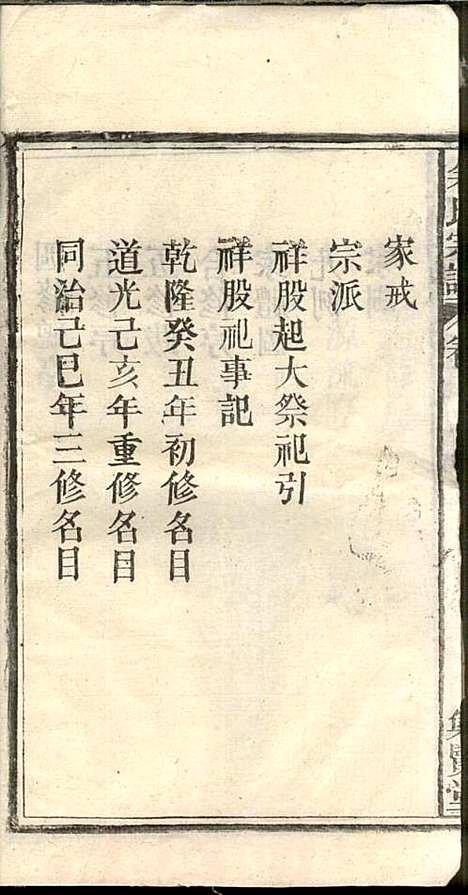 家戒
宗派
祥股起大祭祀引
祥股祀事記
乾隆癸丑年初修名目
道光己亥年重修名目
同治己巳年三修名目
氏宗譜
集賢堂